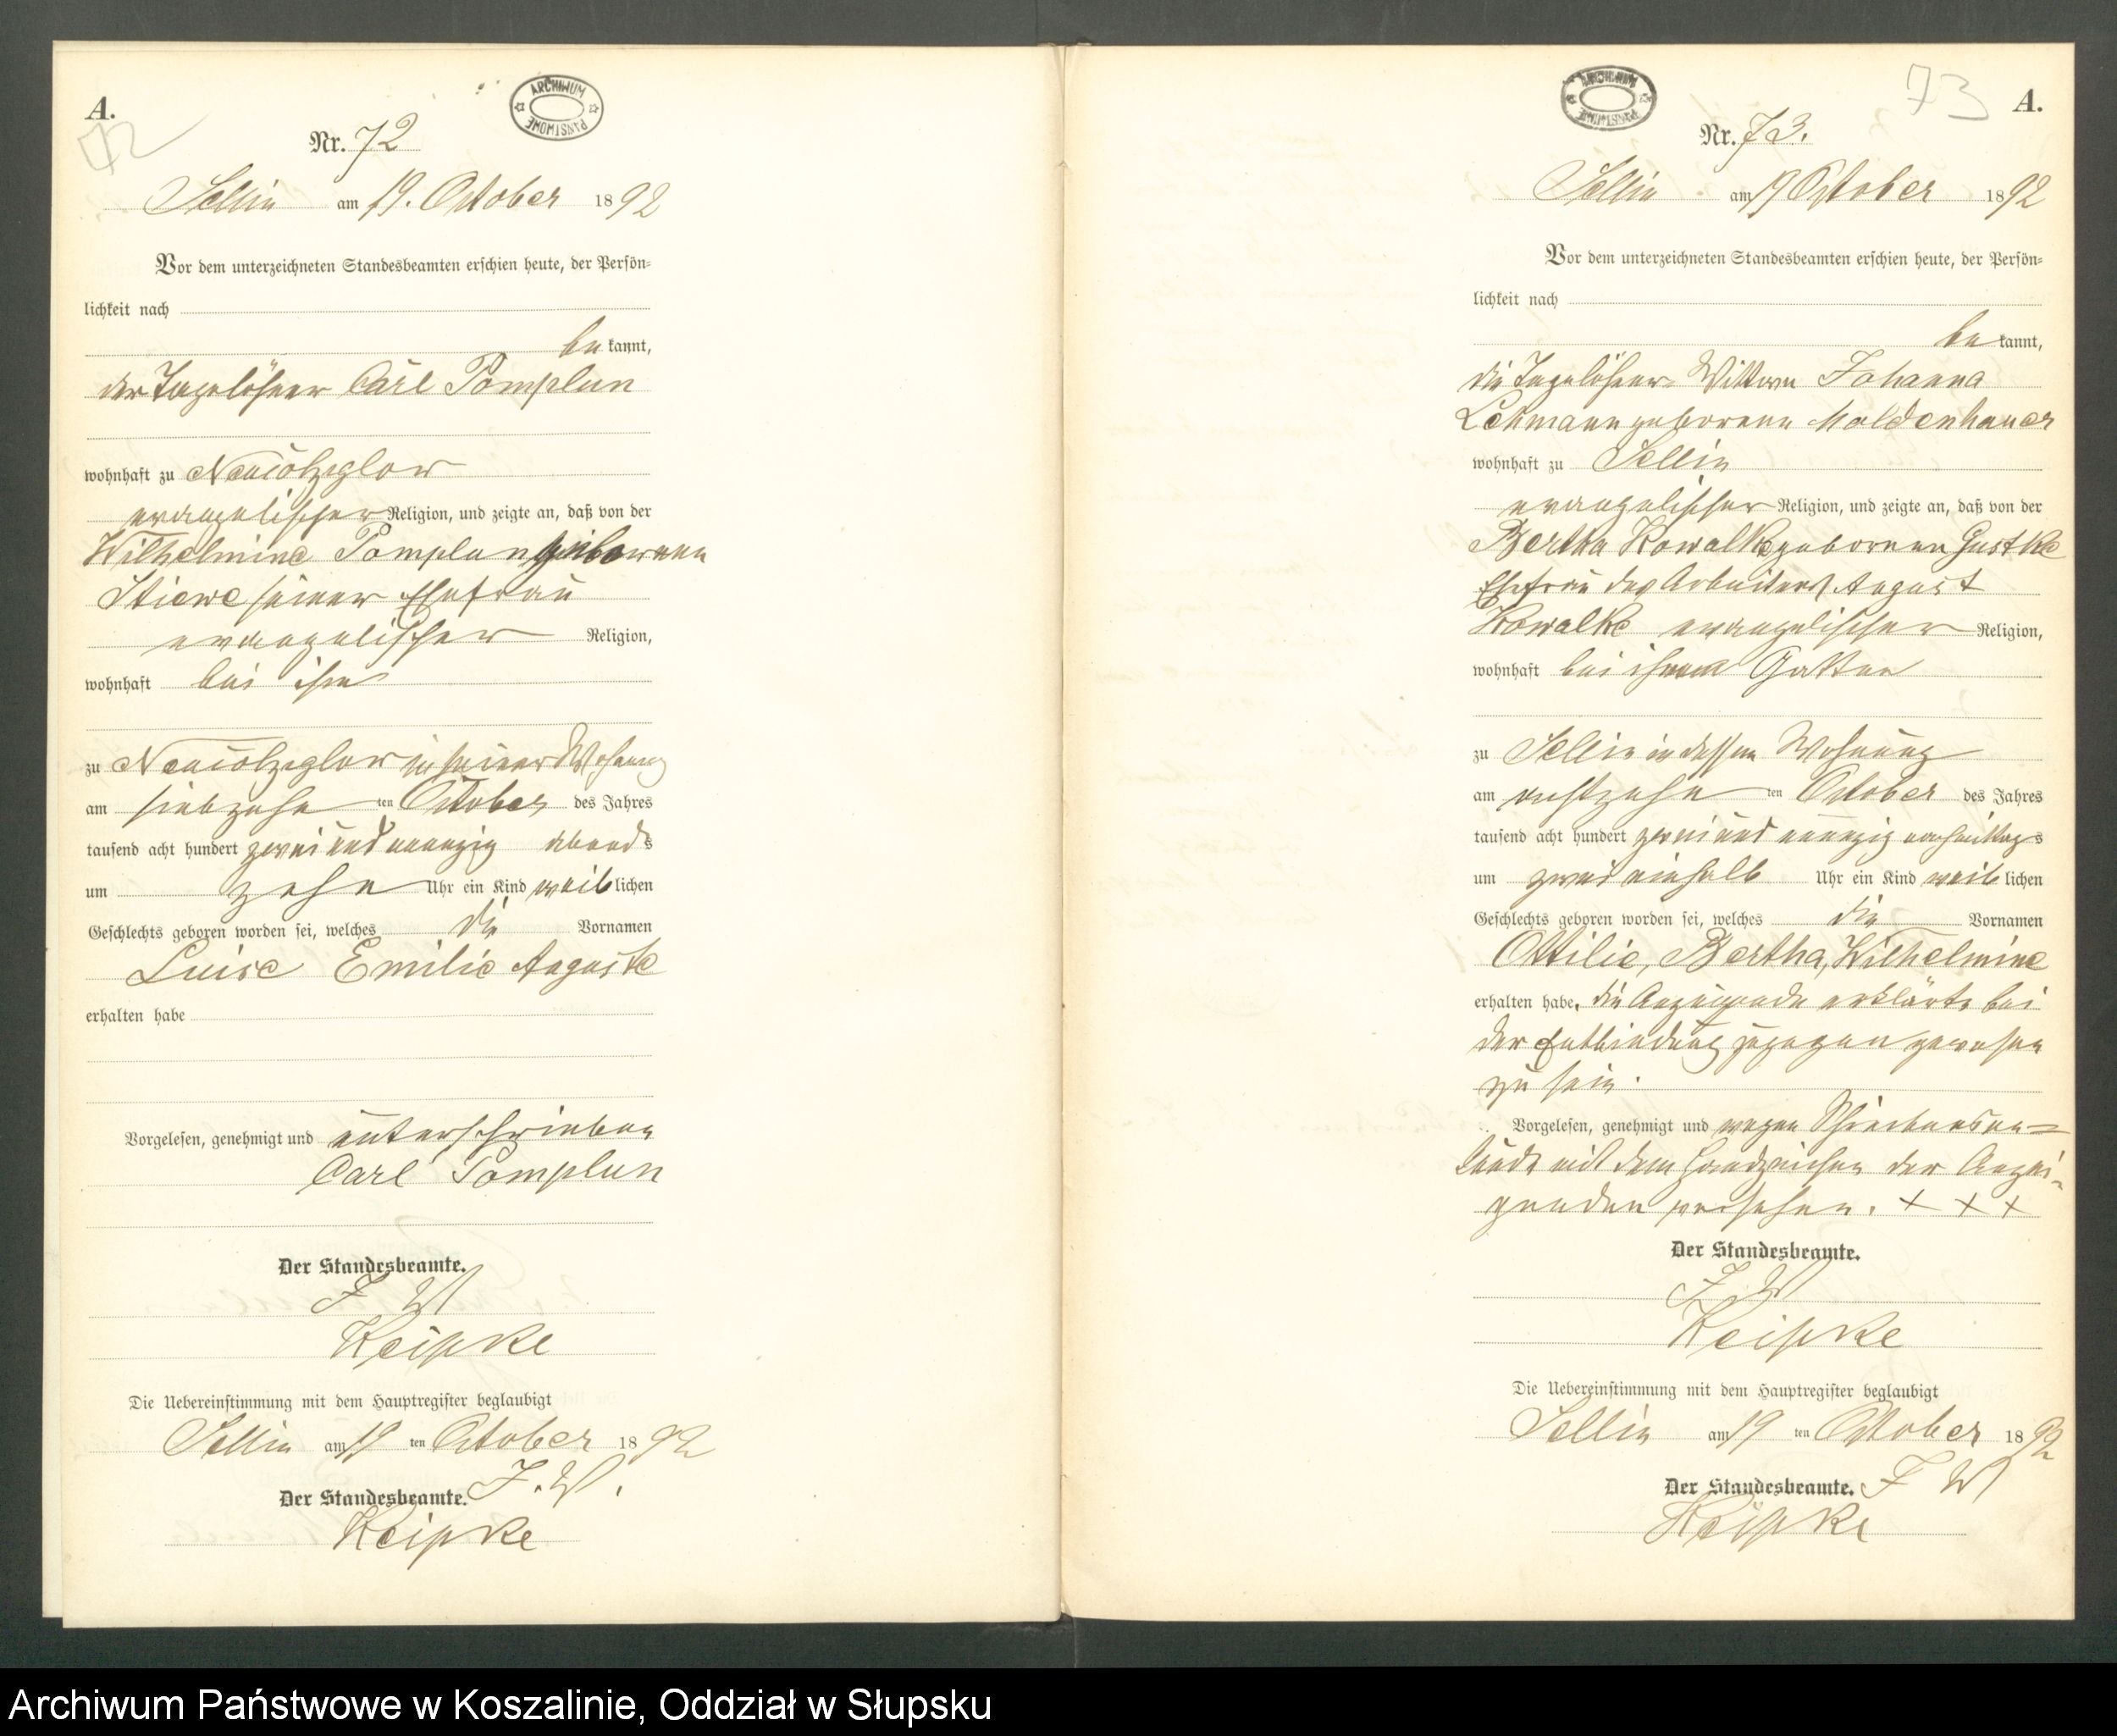 A.
72
ARCHIWUM
PAŃSTWOWE
Nr. 72
Sellin am 19. October 1892
Vor dem unterzeichneten Standesbeamten erschien heute, der Persön=
lichkeit nach
be kannt,
der Tagelöhner Carl Pomplun
wohnhaft zu Neucolziglow
evangelischer Religion, und zeigte an, daß von der
Wilhelmine Pomplun geborenen
Stiewe seiner Ehefrau
evangelischer Religion,
wohnhaft bei ihm
zu Neucolziglow in seiner Wohnung
am siebzehn ten October des Jahres
tausend acht hundert zwei und neunzig abends
um zehn Uhr ein Kind weiblichen
Geschlechts geboren worden sei, welches die Vornamen
Luise Emilie Auguste
erhalten habe
Vorgelesen, genehmigt und unterschrieben
Carl Pomplun
Der Standesbeamte.
J. W
Keipke
Die Uebereinstimmung mit dem Hauptregister beglaubigt
Sellin am 19 ten October 1892
Der Standesbeamte. J. W.
Keipke
ARCHIWUM
PAŃSTWOWE
73
A.
Nr. 73.
Sellin am 19 October 1892
Vor dem unterzeichneten Standesbeamten erschien heute, der Persön=
lichkeit nach
be kannt,
die Tagelöhner Wittwe Johanna
Lehmann geborene Moldenhauer
wohnhaft zu Sellin
evangelischer Religion, und zeigte an, daß von der
Bertha Kowalke geborenen Gustke
Ehefrau des Arbeiters August
Kowalke evangelischer Religion,
wohnhaft bei ihrem Gatten
zu Sellin in dessen Wohnung
am achtzehn ten October des Jahres
tausend acht hundert zwei und neunzig nachmittags
um zwei einhalb Uhr ein Kind weiblichen
Geschlechts geboren worden sei, welches die Vornamen
Ottilie, Bertha, Wilhelmine
erhalten habe, die Anzeigende erklärte bei
der Entbindung zugegen gewesen
zu sein.
Vorgelesen, genehmigt und wegen Schreibensun=
kunde mit dem Handzeichen der Anzei=
genden versehen. + + +
Der Standesbeamte.
J. W
Keipke
Die Uebereinstimmung mit dem Hauptregister beglaubigt
Sellin am 19 ten October 1892
Der Standesbeamte. J W
Keipke
Archiwum Państwowe w Koszalinie, Oddział w Słupsku